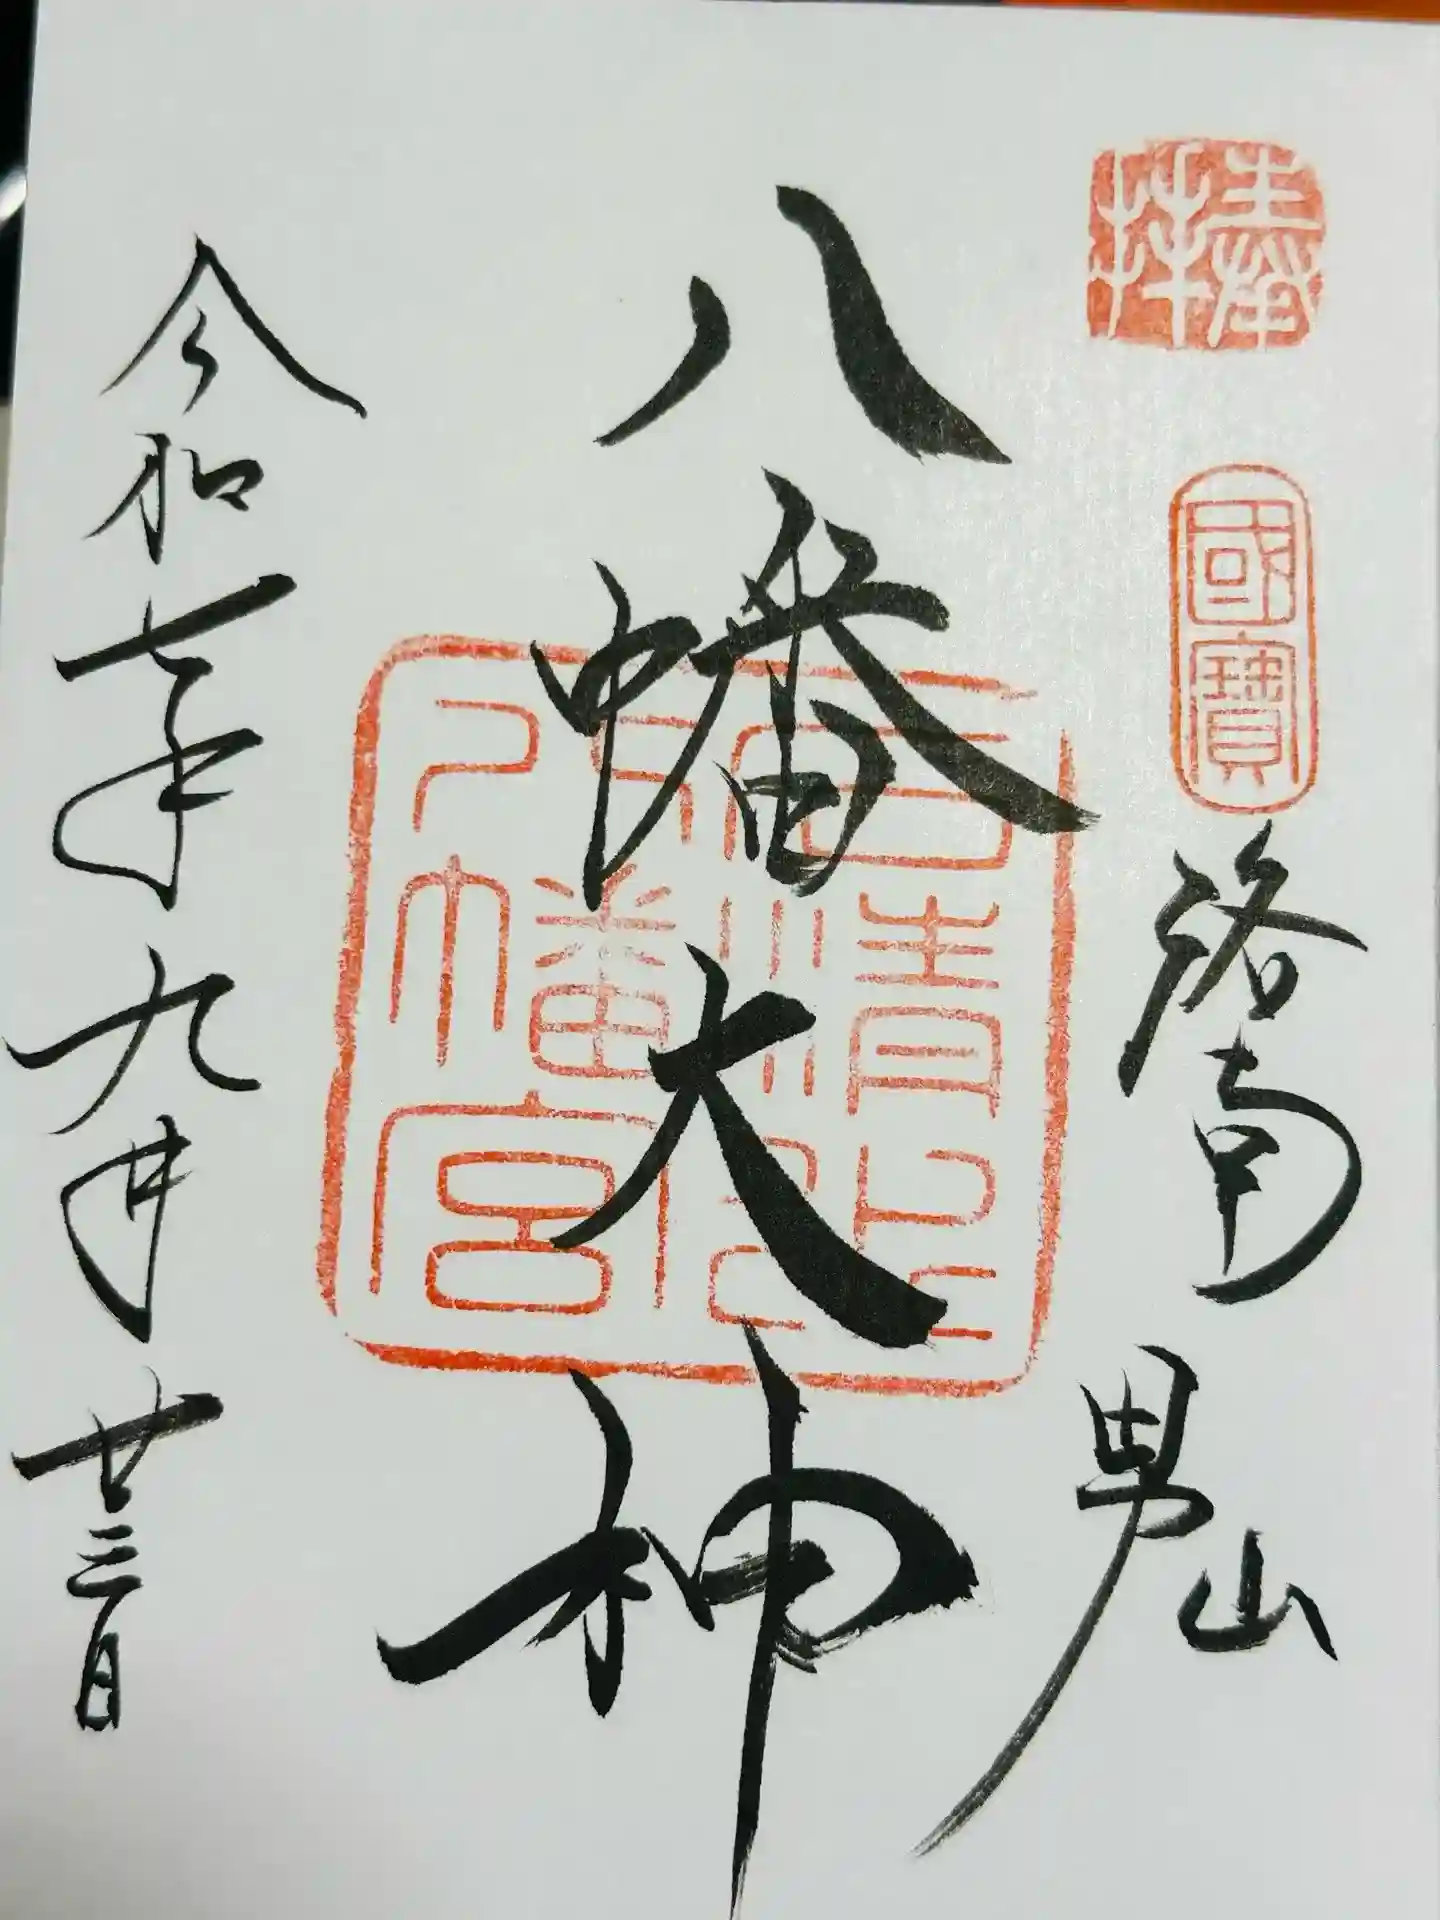 奉拝
國寶
洛南
男山
八幡大神
石清水八幡宮
令和七年九月廿三日